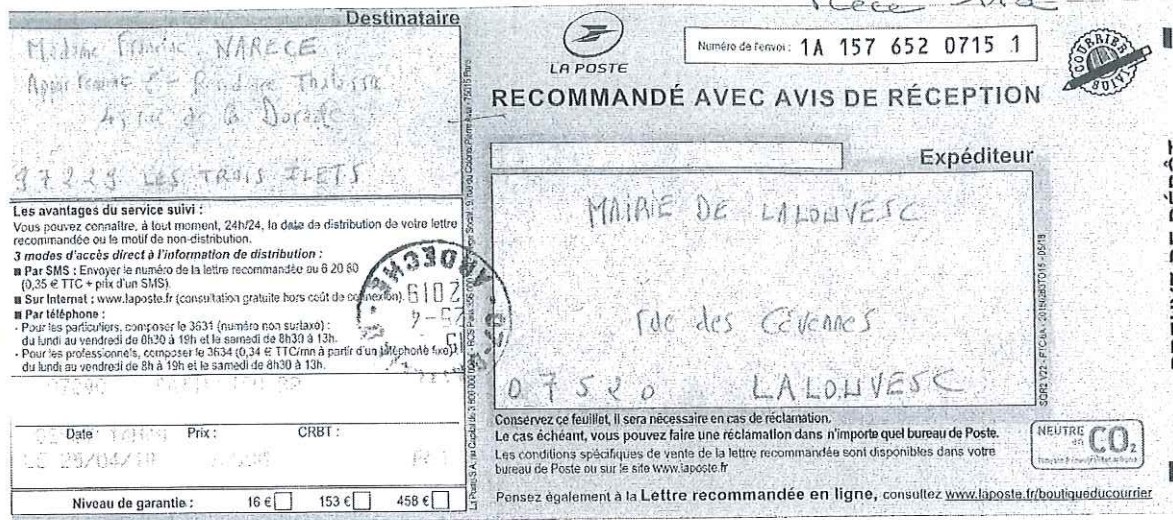 Destinataire
Madame NARECE
Appartement
de la Dorade
97229 LES TROIS ILETS
Les avantages du service suivi :
Vous pouvez connaître, à tout moment, 24h/24, la date de distribution de votre lettre
recommandée ou le motif de non-distribution.
3 modes d'accès direct à l'information de distribution :
■ Par SMS : Envoyer le numéro de la lettre recommandée au 6 20 80
(0,35 € TTC + prix d'un SMS).
■ Sur Internet : www.laposte.fr (consultation gratuite hors coût de connexion).
■ Par téléphone :
- Pour les particuliers, composer le 3631 (numéro non surtaxé) :
du lundi au vendredi de 8h30 à 19h et le samedi de 8h30 à 13h.
- Pour les professionnels, composer le 3634 (0,34 € TTC/mn à partir d'un téléphone fixe)
du lundi au vendredi de 8h à 19h et le samedi de 8h30 à 13h.
Date : Prix : CRBT :
Niveau de garantie : 16 € 153 € 458 €
ARDECHE
2019
25-4
LA POSTE
Numéro de l'envoi : 1A 157 652 0715 1
COURRIER
RECOMMANDÉ AVEC AVIS DE RÉCEPTION
Expéditeur
MAIRIE DE LALOUVESC
rue des Cévennes
07520 LALOUVESC
Conservez ce feuillet, il sera nécessaire en cas de réclamation.
Le cas échéant, vous pouvez faire une réclamation dans n'importe quel bureau de Poste.
Les conditions spécifiques de vente de la lettre recommandée sont disponibles dans votre
bureau de Poste ou sur le site www.laposte.fr
Pensez également à la Lettre recommandée en ligne, consultez www.laposte.fr/boutiqueducourrier
NEUTRE en CO₂